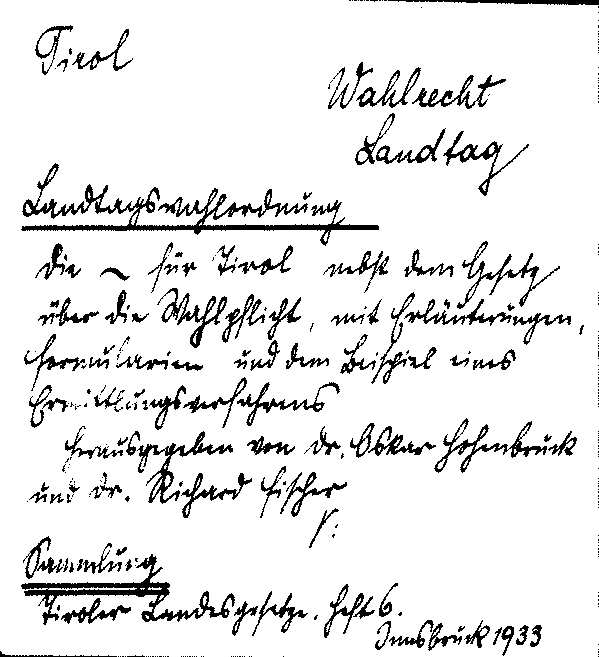 Tirol
Wahlrecht
Landtag
Landtagswahlordnung
Die ~ für Tirol nebst dem Gesetz
über die Wahlpflicht, mit Erläuterungen,
Formularien und dem Beispiel eines
Ermittlungsverfahrens
Herausgegeben von Dr. Oskar Hohenbruck
und Dr. Richard Fischer
Sammlung
Tiroler Landesgesetze. Heft 6.
Innsbruck 1933